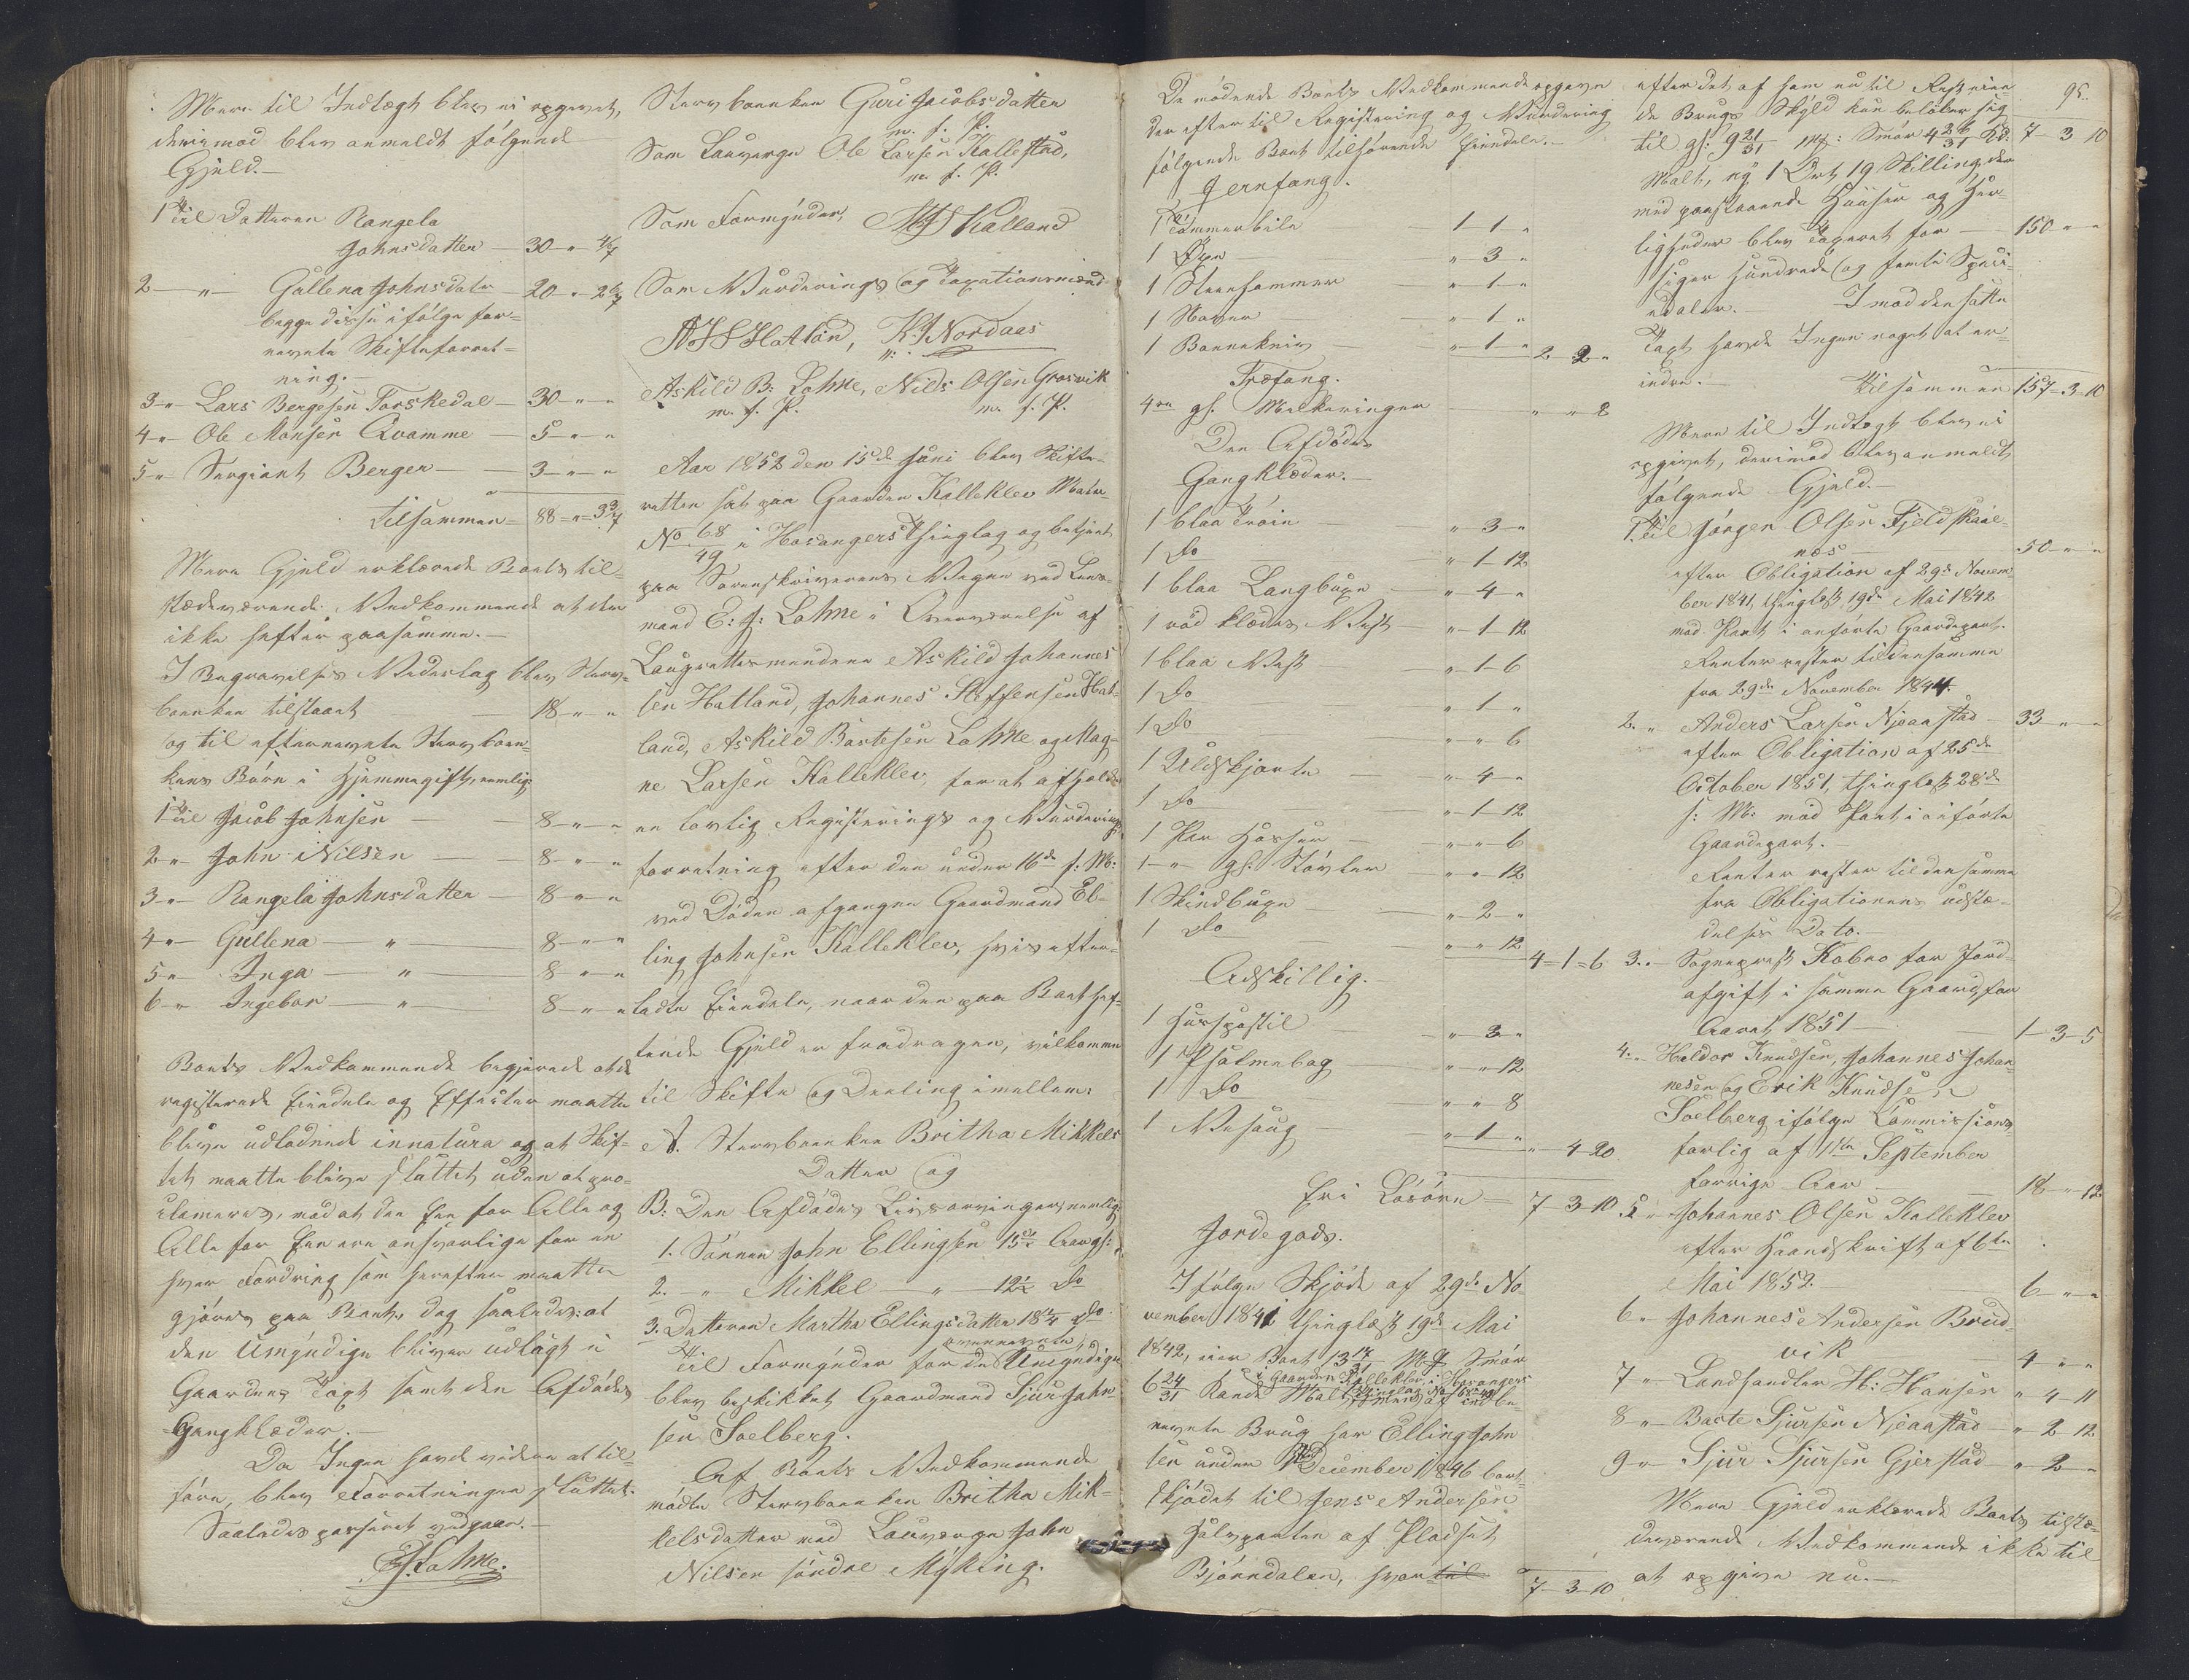 Mere til Indtægt blev ei opgivet,
derimod blev anmeldt følgende
Gjeld.—
1 til Datteren Rangela
Johnsdatter — 30 - " 4/7
2 — " — Gullena Johnsdatr — 20 - " 2 6/7
begge disse ifølge for-
nevnte Skifteforret-
ning.—
3 " Lars Bergesen Torskedal — 30 - " - "
4 " Ole Monsen Qvamme — 5 - " - "
5 " Sergiant Berger — 3 - " - "
tilsammen = 88 = " = 3 3/7
Mere Gjeld erklærede Boets til-
stædeværende Vedkommende at der
ikke hefter paa samme.—
I Begravelses Vederlag blev Sterv-
boenken tilstaaet — 18 - " - "
og til efternevnte Stervboen-
kens Børn i Hjemmegift, nemlig:
1 til Jacob Johnsen — 8 - " - "
2 " John Nilsen — 8 - " - "
3 " Rangela Johnsdatter — 8 - " - "
4 " Gullena — " — 8 - " - "
5 " Inga — " — 8 - " - "
6 " Ingebor — " — 8 - " - "
Boets Vedkommende begjerede at de
registerede Eiendele og Effecter maatte
blive udlodnede innatura og at Skif-
tet maatte blive sluttet uden at pro-
clameres, mod at den Een for Alle og
Alle for Een ere ansvarlige for en
hver Fordring som herefter maatte
gjøres paa Boet, dog saaledes: at
den Umyndige bliver udlagt i
Gaardens Taxt samt den Afdødes
Gangklæder.—
Da Ingen havde videre at til-
føre, blev Forretningen sluttet.
Saaledes passeret vidgaaer.—
E J Lohne.
Stervboenken Guri Jacobsdatter
m. f. P.
Som Laugværge Ole Larsen Kallestad,
m. f. P.
Som Formynder,  Kalland
Som Vurderings og Taxationsmænd
Hatlan, K. J Nordaas
Askild B: Lohne, Nils Olsen Grosvik
m. f. P. m. f. P.
Aar 1852 den 15de Juni blev Skifte-
retten sat paa Gaarden Kalleklev Matr.
No 68/49 i Hosangers Thinglag og betjent
paa Sorenskriverens Vegne ved Lens-
mand E: J: Lohne i Overværelse af
Laugrettesmændene Askild Johannes-
sen Hatland, Johannes Steffensen Hat-
land, Askild Bårtesen Lohne og Mag-
ne Larsen Kalleklev, for at afholde
en lovlig Registerings og Vurderings
forretning efter den under 16de f: M:
ved Døden afgangne Gaardmand El-
ling Johnsen Kalleklev, hvis efter-
ladte Eiendele, naar den paa Boet hef-
tende Gjeld er fradragen, vilkomme
til Skifte og Deeling imellem:
A. Stervboenken Britha Mikkels
Datter og
B: Den Afdødes Livsarvinger, nemlig:
1. Sønnen John Ellingsen 15 1/2 Aar gl:
2. " Mikkel — " — 12 1/2 Do
3. Datteren Martha Ellingsdatter 18 1/4 Do
Til Formynder for de ovennevnte Umyndige
blev beskikket Gaardmand Sjur John-
sen Soelberg.
Af Boets Vedkommende
mødte Stervboenken Britha Mik-
kelsdatter med Laugværge John
Nilsen søndre Myking.
De mødende Boets Vedkommende opgave
der efter til Registering og Vurdering
følgende Boet tilhørende Eiendele.—
Jernfang.
1 Tømmerbile — 1 - 1 - "
1 Øxe — " - 3 - "
1 Steenhammer — " - 1 - "
1 Naver — " - 1 - "
1 Baandkniv — " - 1 - " 2 - 2 - "
Træfang.
4re gl. Melkeringer — " - " - 8
Den Afdødes
Gangklæder.—
1 blaa Trøie — " - 3 - "
1 Do — " - 1 - 12
1 blaa Langbuxe — " - 4 - "
1 rød klædes Vest — " - 1 - 12
1 blaa Vest — " - 1 - 6
1 Do — " - 1 - "
1 Do — " - " - 6
1 Uldskjorte — " - 4 - "
1 Do — " - 1 - 12
1 Par Hosser — " - " - 6
1 - " gl: Støvler — " - " - 12
1 Skindbuxe — " - 2 - "
1 Do — " - " - 12
4 = 1 = 6
Adskillig.
1 Huuspostil — " - 2 - "
1 Psalmebog — " - " - 12
1 Do — " - " - 8
1 Vesaug — " - 1 - "
" - 4 - 20
Eri Løsøre = 7 - 3 - 10
Jordegods.
Ifølge Skjøde af 29de No-
vember 1841 thinglæst 19de Mai
1842, eier Boet 13 17/31 Mrk Smør
i Gaarden Kalleklev i Hosangers
6 24/31 Kande Malt
nevnte Brug har Elling John
sen under December 1846 bort-
skjødet til Jens Andersen
Halvparten af Pladset
Bjønndalen, hvor til
7 - 3 - 10
95.
efter det af ham nu til Rest eien-
de Brug Skyld kun beløber sig
til gl: 9 21/31 Mrk: Smør 4 26/31 Kd: 7 - 3 - 10
Malt, ny 1 Ort 19 Skilling, der
med paastaaende Huuser og Her-
ligheder blev taxeret for — 150 - " - "
siger Hundrede og femti Speci-
edaler.— Imod den satte
Taxt havde Ingen noget at er-
indre.— Tilsammen 157 - 3 - 10
Mere til Indtægt blev ei
opgivet, derimod blev anmeldt
følgende Gjeld.—
1 til Jørgen Olsen Fjeldskaal-
næs — 50 - " - "
efter Obligation af 29de Novem-
ber 1841, thinglæst 19de Mai 1842
mod Pant i anførte Gaardepart.
Renter rester til densamme
fra 29de November 1844.
2. " Anders Larsen Njaastad — 33 - " - "
efter Obligation af 25de
October 1851, thinglæst 28de
s: M: mod Pant i anførte
Gaardepart.
Renter rester til densamme
fra Obligationens udstæ-
delses Dato.—
3. " Sognepræst Kobro for Jord-
afgift i samme Gaard, for
Aaret 1851 — 1 - 3 - 5
4. " Haldor Knudsen, Johannes Johan-
nesen og Erik Knudsen
Soelberg ifølge Commissions-
forlig af 11te September
forrige Aar — 18 - " - 12
5. " Johannes Olsen Kalleklev
efter Haandskrift af 6te
Mai 1852. — 6 - " - "
6. " Johannes Andersen Brud-
vik — 4 - " - "
7 " Landhandler H: Hansen " - 4 - 11
8 " Baste Sjursen Njaastad " - 2 - 12
9 " Sjur Sjursen Gjerstad " - 2 - "
Mere Gjeld erklærede Boets tilstæ-
deværende Vedkommende ikke til
at opgive nu.—